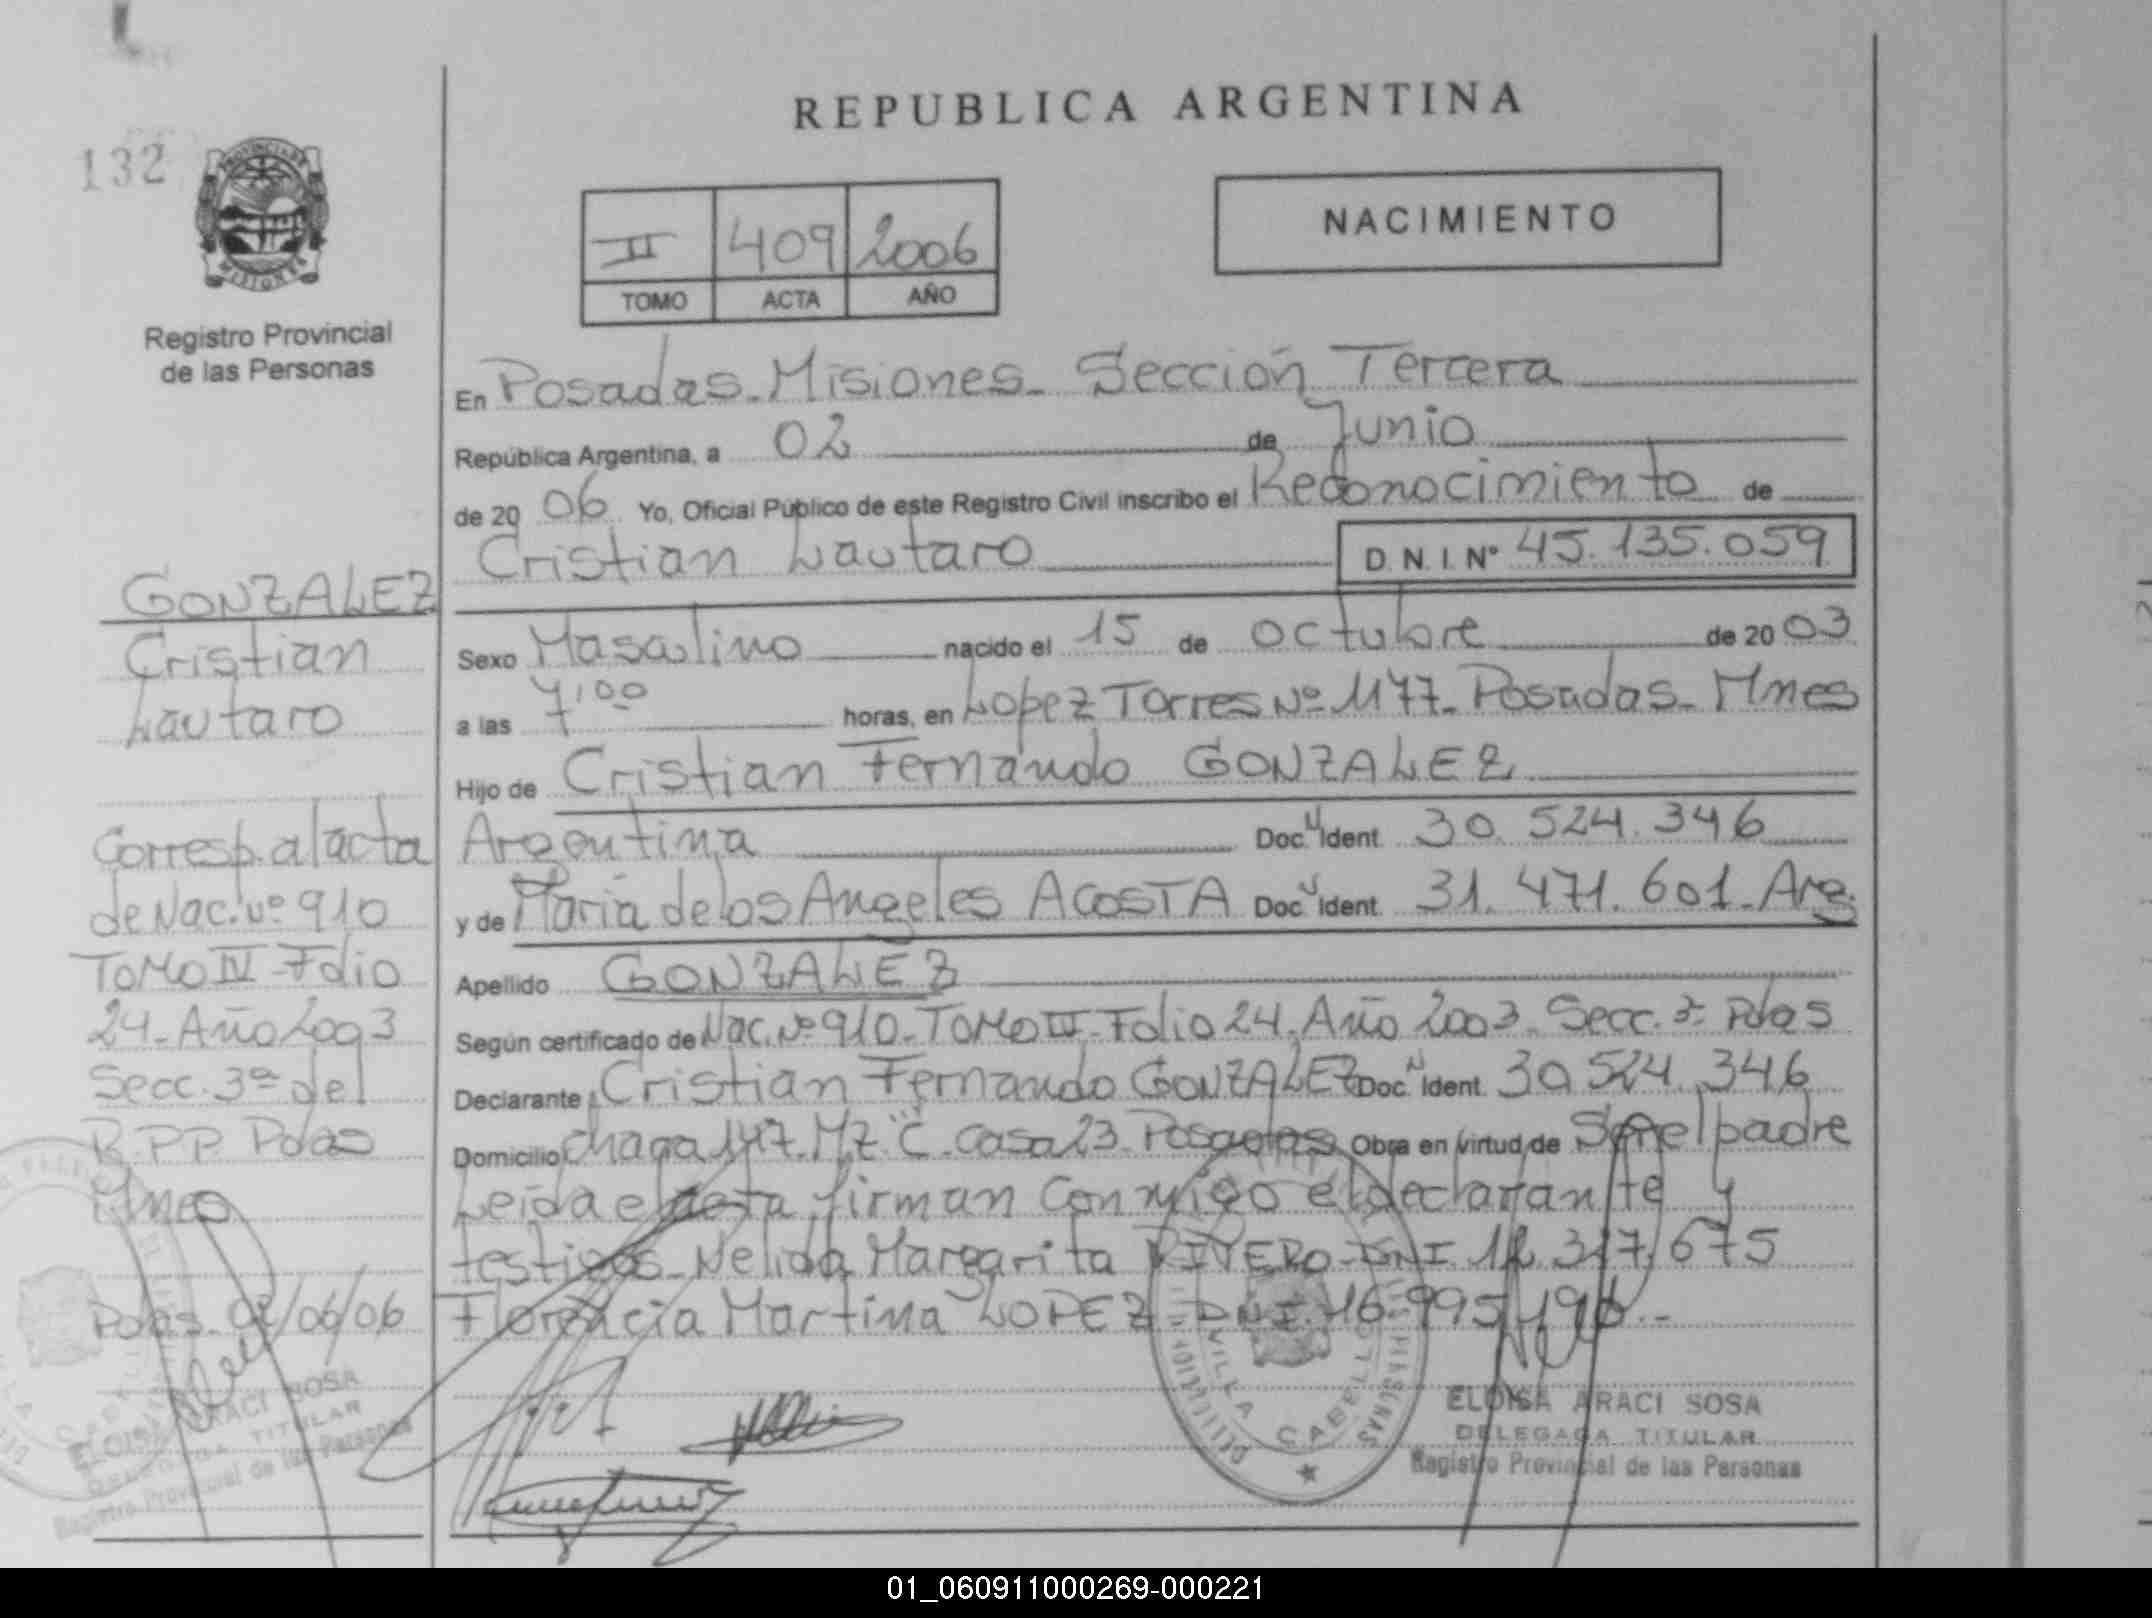 REPUBLICA ARGENTINA
132
PROVINCIA DE
MISIONES
Registro Provincial
de las Personas
II 409 2006
TOMO ACTA AÑO
NACIMIENTO
En Posadas - Misiones - Sección Tercera
República Argentina, a 02 de Junio
de 20 06 Yo, Oficial Público de este Registro Civil inscribo el Reconocimiento de
Cristian Lautaro D.N.I. Nº 45.135.059
Sexo Masculino nacido el 15 de octubre de 20 03
a las 7,00 horas, en Lopez Torres Nº 1177 - Posadas - Mnes
Hijo de Cristian Fernando GONZALEZ
Argentina Doc. N Ident. 30.524.346
y de Maria de los Angeles ACOSTA Doc. N Ident. 31.471.601 - Arg.
Apellido GONZALEZ
Según certificado de Nac. Nº 910 - TOMO III - Folio 24 - Año 2003 - Secc. 3ª Pdas
Declarante Cristian Fernando GONZALEZ Doc. N Ident. 30.524.346
Domicilio chaca 147 - Mz "C" - Casa 23 - Posadas Obra en virtud de Ser el padre
Leida el acta firman conmigo el declarante y
testigos - Nelida Margarita RIVERO - DNI. 12.317.675
Florencia Martina LOPEZ - DNI. 16.995.196.-
GONZALEZ
Cristian
Lautaro
Corresp. al acta
de Nac. nº 910
TOMO IV - Folio
24 - Año 2003
Secc. 3ª del
R.P.P. Pdas
Mnes
Pdas. 02/06/06
ELOISA ARACI SOSA
DELEGADA TITULAR
Registro Provincial de las Personas
VILLA CABELLO
ELOISA ARACI SOSA
DELEGADA TITULAR
Registro Provincial de las Personas
01_060911000269-000221